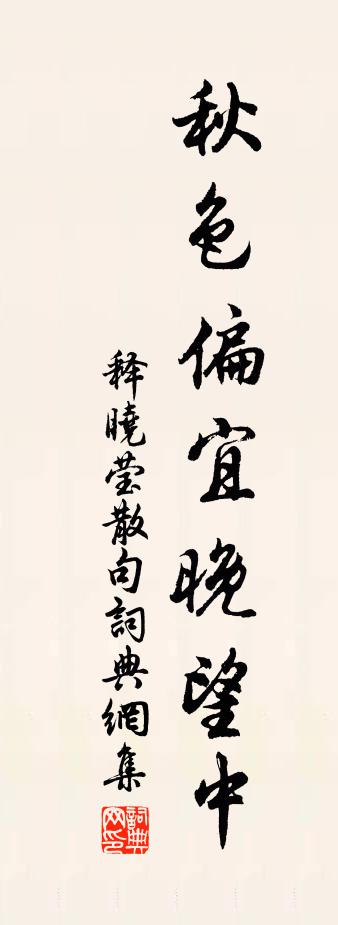 秋色偏宜晚望中
释曉莹散句詞典網集
詞典網印